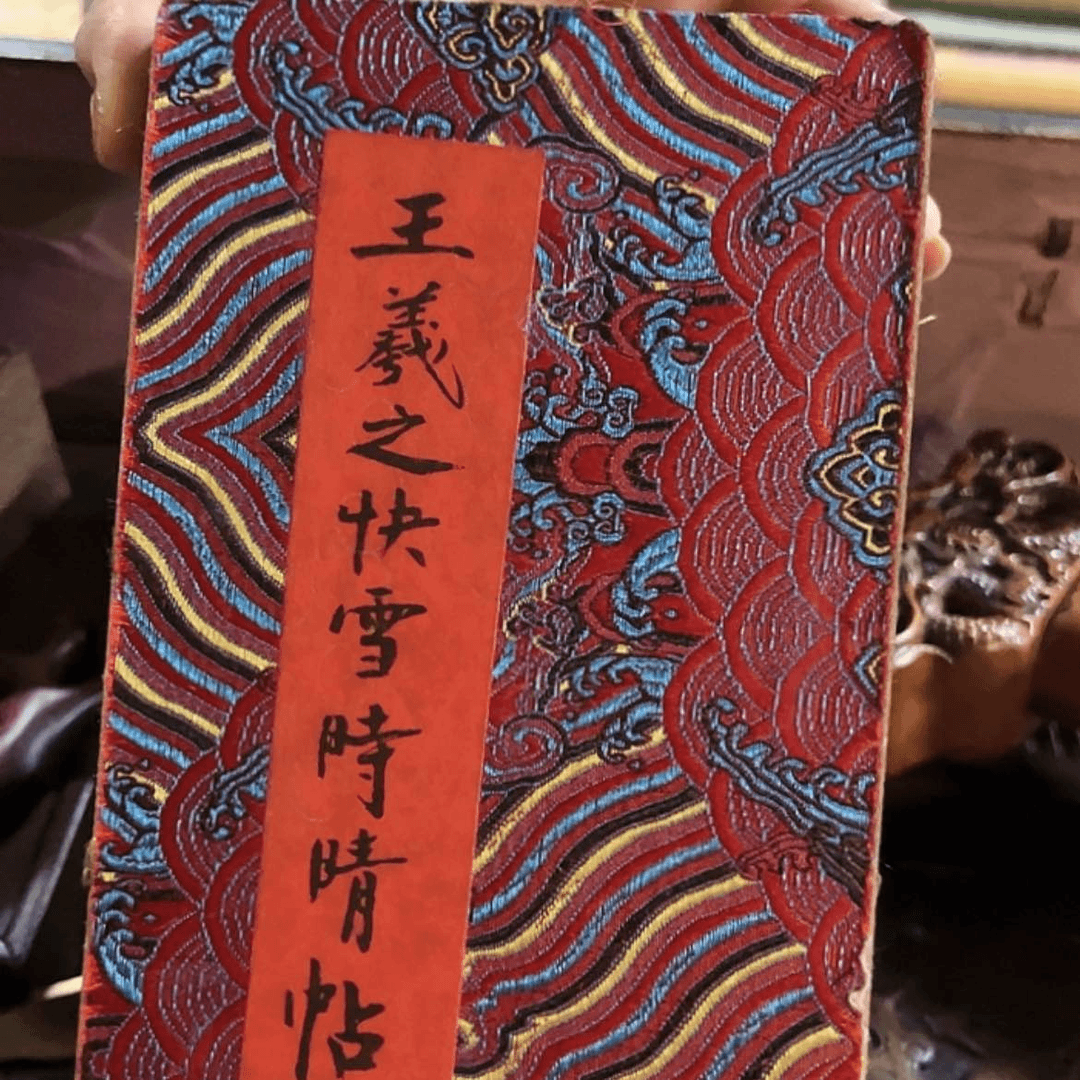 王羲之快雪時晴帖